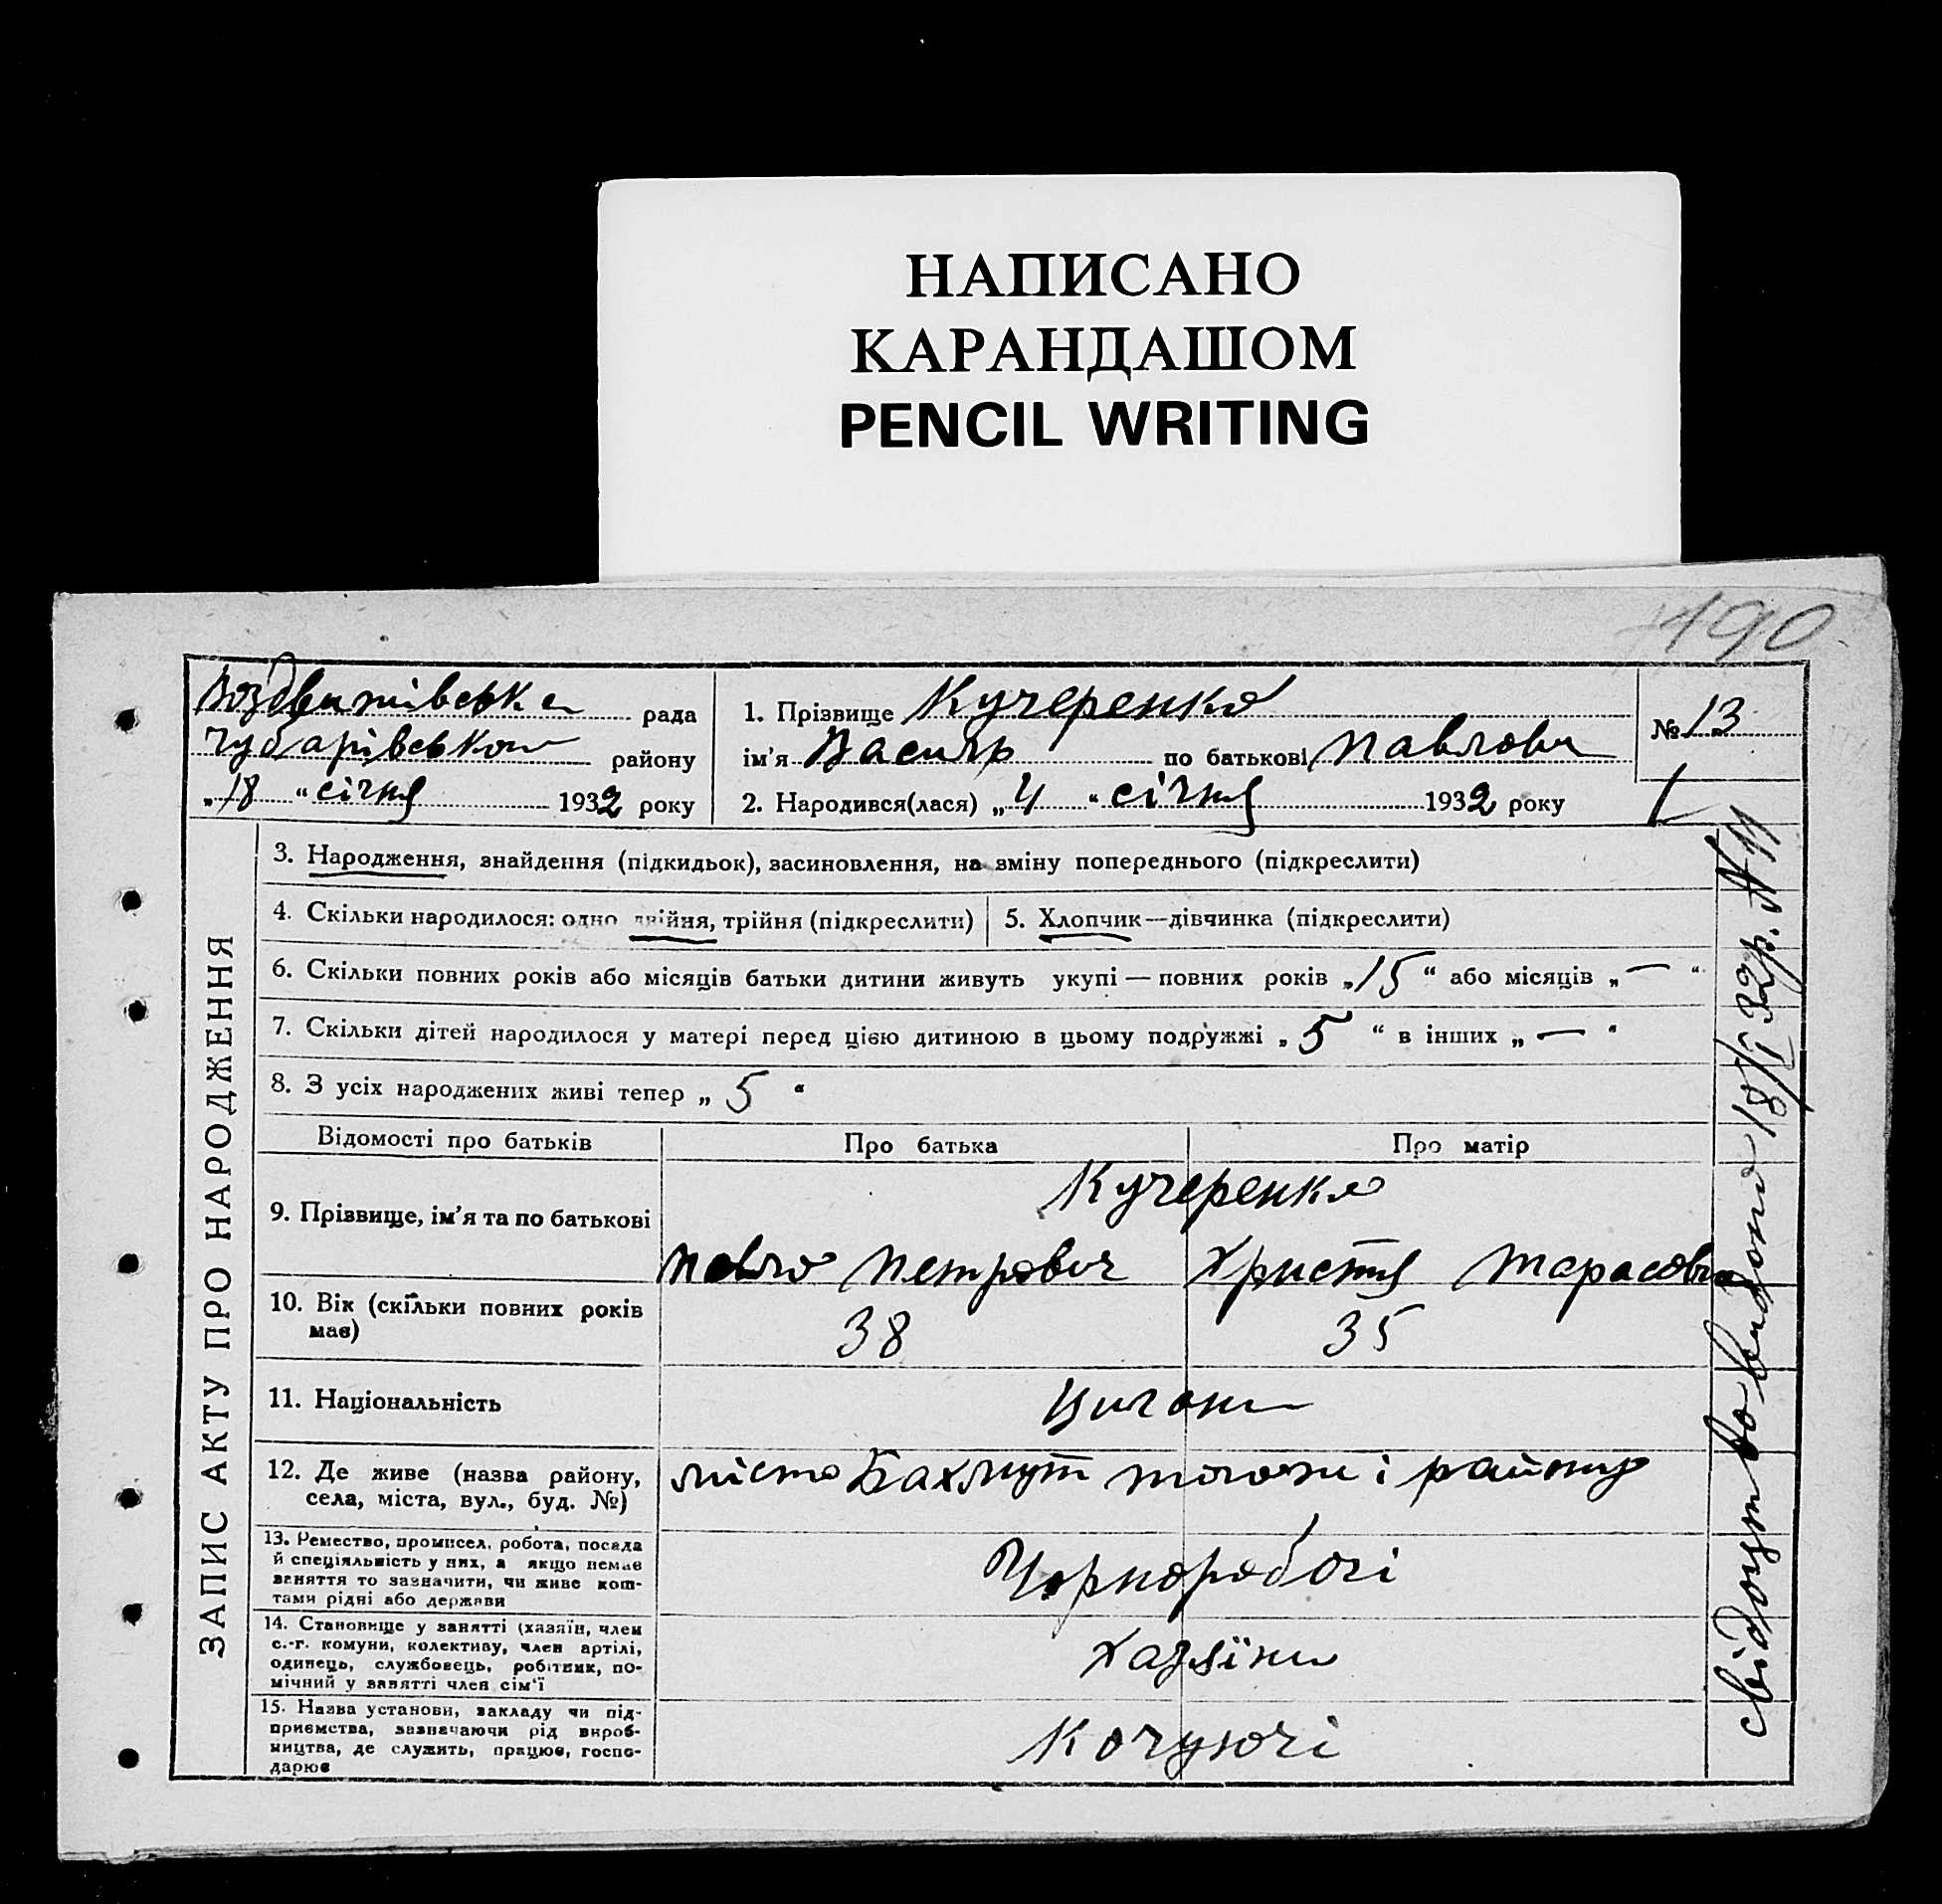 НАПИСАНО
КАРАНДАШОМ
PENCIL WRITING
190
Воздвижівська рада
Чубарівського району
„18“ січня 1932 року
1. Прізвище Кучеренко
ім'я Василь по батькові Павлович
2. Народився(лася) „4“ січня 1932 року
№ 13
1
ЗАПИС АКТУ ПРО НАРОДЖЕННЯ
3. Народження, знайдення (підкидьок), засиновлення, на зміну попереднього (підкреслити)
4. Скільки народилося: одно двійня, трійня (підкреслити)
5. Хлопчик—дівчинка (підкреслити)
6. Скільки повних років або місяців батьки дитини живуть укупі — повних років „15“ або місяців „—“
7. Скільки дітей народилося у матері перед цією дитиною в цьому подружжі „5“ в інших „—“
8. З усіх народжених живі тепер „5“
Відомості про батьків
Про батька
Про матір
9. Прізвище, ім'я та по батькові
Кучеренко
Павло Петрович
Христя Тарасовна
10. Вік (скільки повних років
має)
38
35
11. Національність
Цигани
12. Де живе (назва району,
села, міста, вул., буд. №)
місто Бахмут і району
13. Ремество, промисел, робота, посада
й спеціяльність у них, а якщо немає
заняття то зазначити, чи живе кош-
тами рідні або держави
Чорноробочі
14. Становище у занятті (хазяїн, член
с.-г. комуни, колективу, член артілі,
одинець, службовець, робітник, по-
мічний у занятті член сім'ї
Хазяїни
15. Назва установи, закладу чи під-
приємства, зазначаючи рід вироб-
ництва, де служить, працює, госпо-
дарює
Кочуючі
свідоцтво видано 18/I 32р. № 11